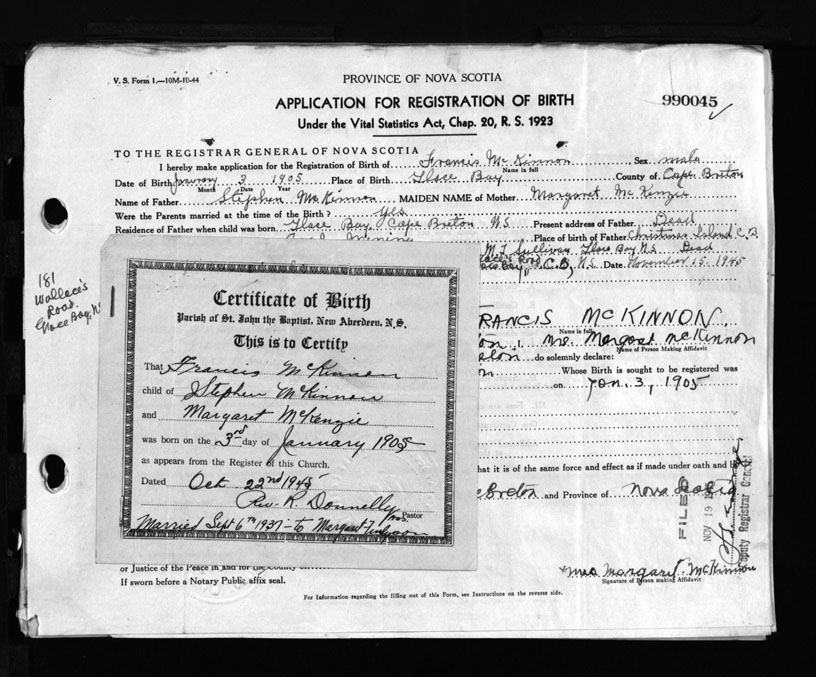 V. S. Form 1.—10M-10-44
PROVINCE OF NOVA SCOTIA
APPLICATION FOR REGISTRATION OF BIRTH
990045
Under the Vital Statistics Act, Chap. 20, R. S. 1923
TO THE REGISTRAR GENERAL OF NOVA SCOTIA
I hereby make application for the Registration of Birth of Francis McKinnon Sex male
Name in full
Date of Birth January 3 1905 Place of Birth Glace Bay County of Cape Breton
Month Date Year
Name of Father Stephen McKinnon MAIDEN NAME of Mother Margaret McKenzie
Were the Parents married at the time of the Birth? Yes
Residence of Father when child was born. Glace Bay, Cape Breton NS Present address of Father Dead
Place of birth of Father Christmas Island C.B.
M. J. Sullivan Glace Bay N.S. Dead
C.B. N.S. Date November 15, 1945
181
Wallace's
Road
Glace Bay, NS
Certificate of Birth
Parish of St. John the Baptist, New Aberdeen, N.S.
This is to Certify
That Francis McKinnon
child of Stephen McKinnon
and Margaret McKenzie
was born on the 3rd day of January 1905
as appears from the Register of this Church.
Dated Oct 22nd 1945
Rev. R. Donnelly
Pastor
Married Sept 6th 1937 – to Margaret
FRANCIS McKINNON
Name in full
I, Mrs Margaret McKinnon
Name of Person Making Affidavit
do solemnly declare:
Whose Birth is sought to be registered was
on Jan. 3, 1905
that it is of the same force and effect as if made under oath and
Breton and Province of Nova Scotia
FILED
NOV 19
Deputy Registrar General
Mrs Margaret McKinnon
Signature of Person making Affidavit
or Justice of the Peace in and for the County
If sworn before a Notary Public affix seal.
For Information regarding the filling out of this Form, see Instructions on the reverse side.